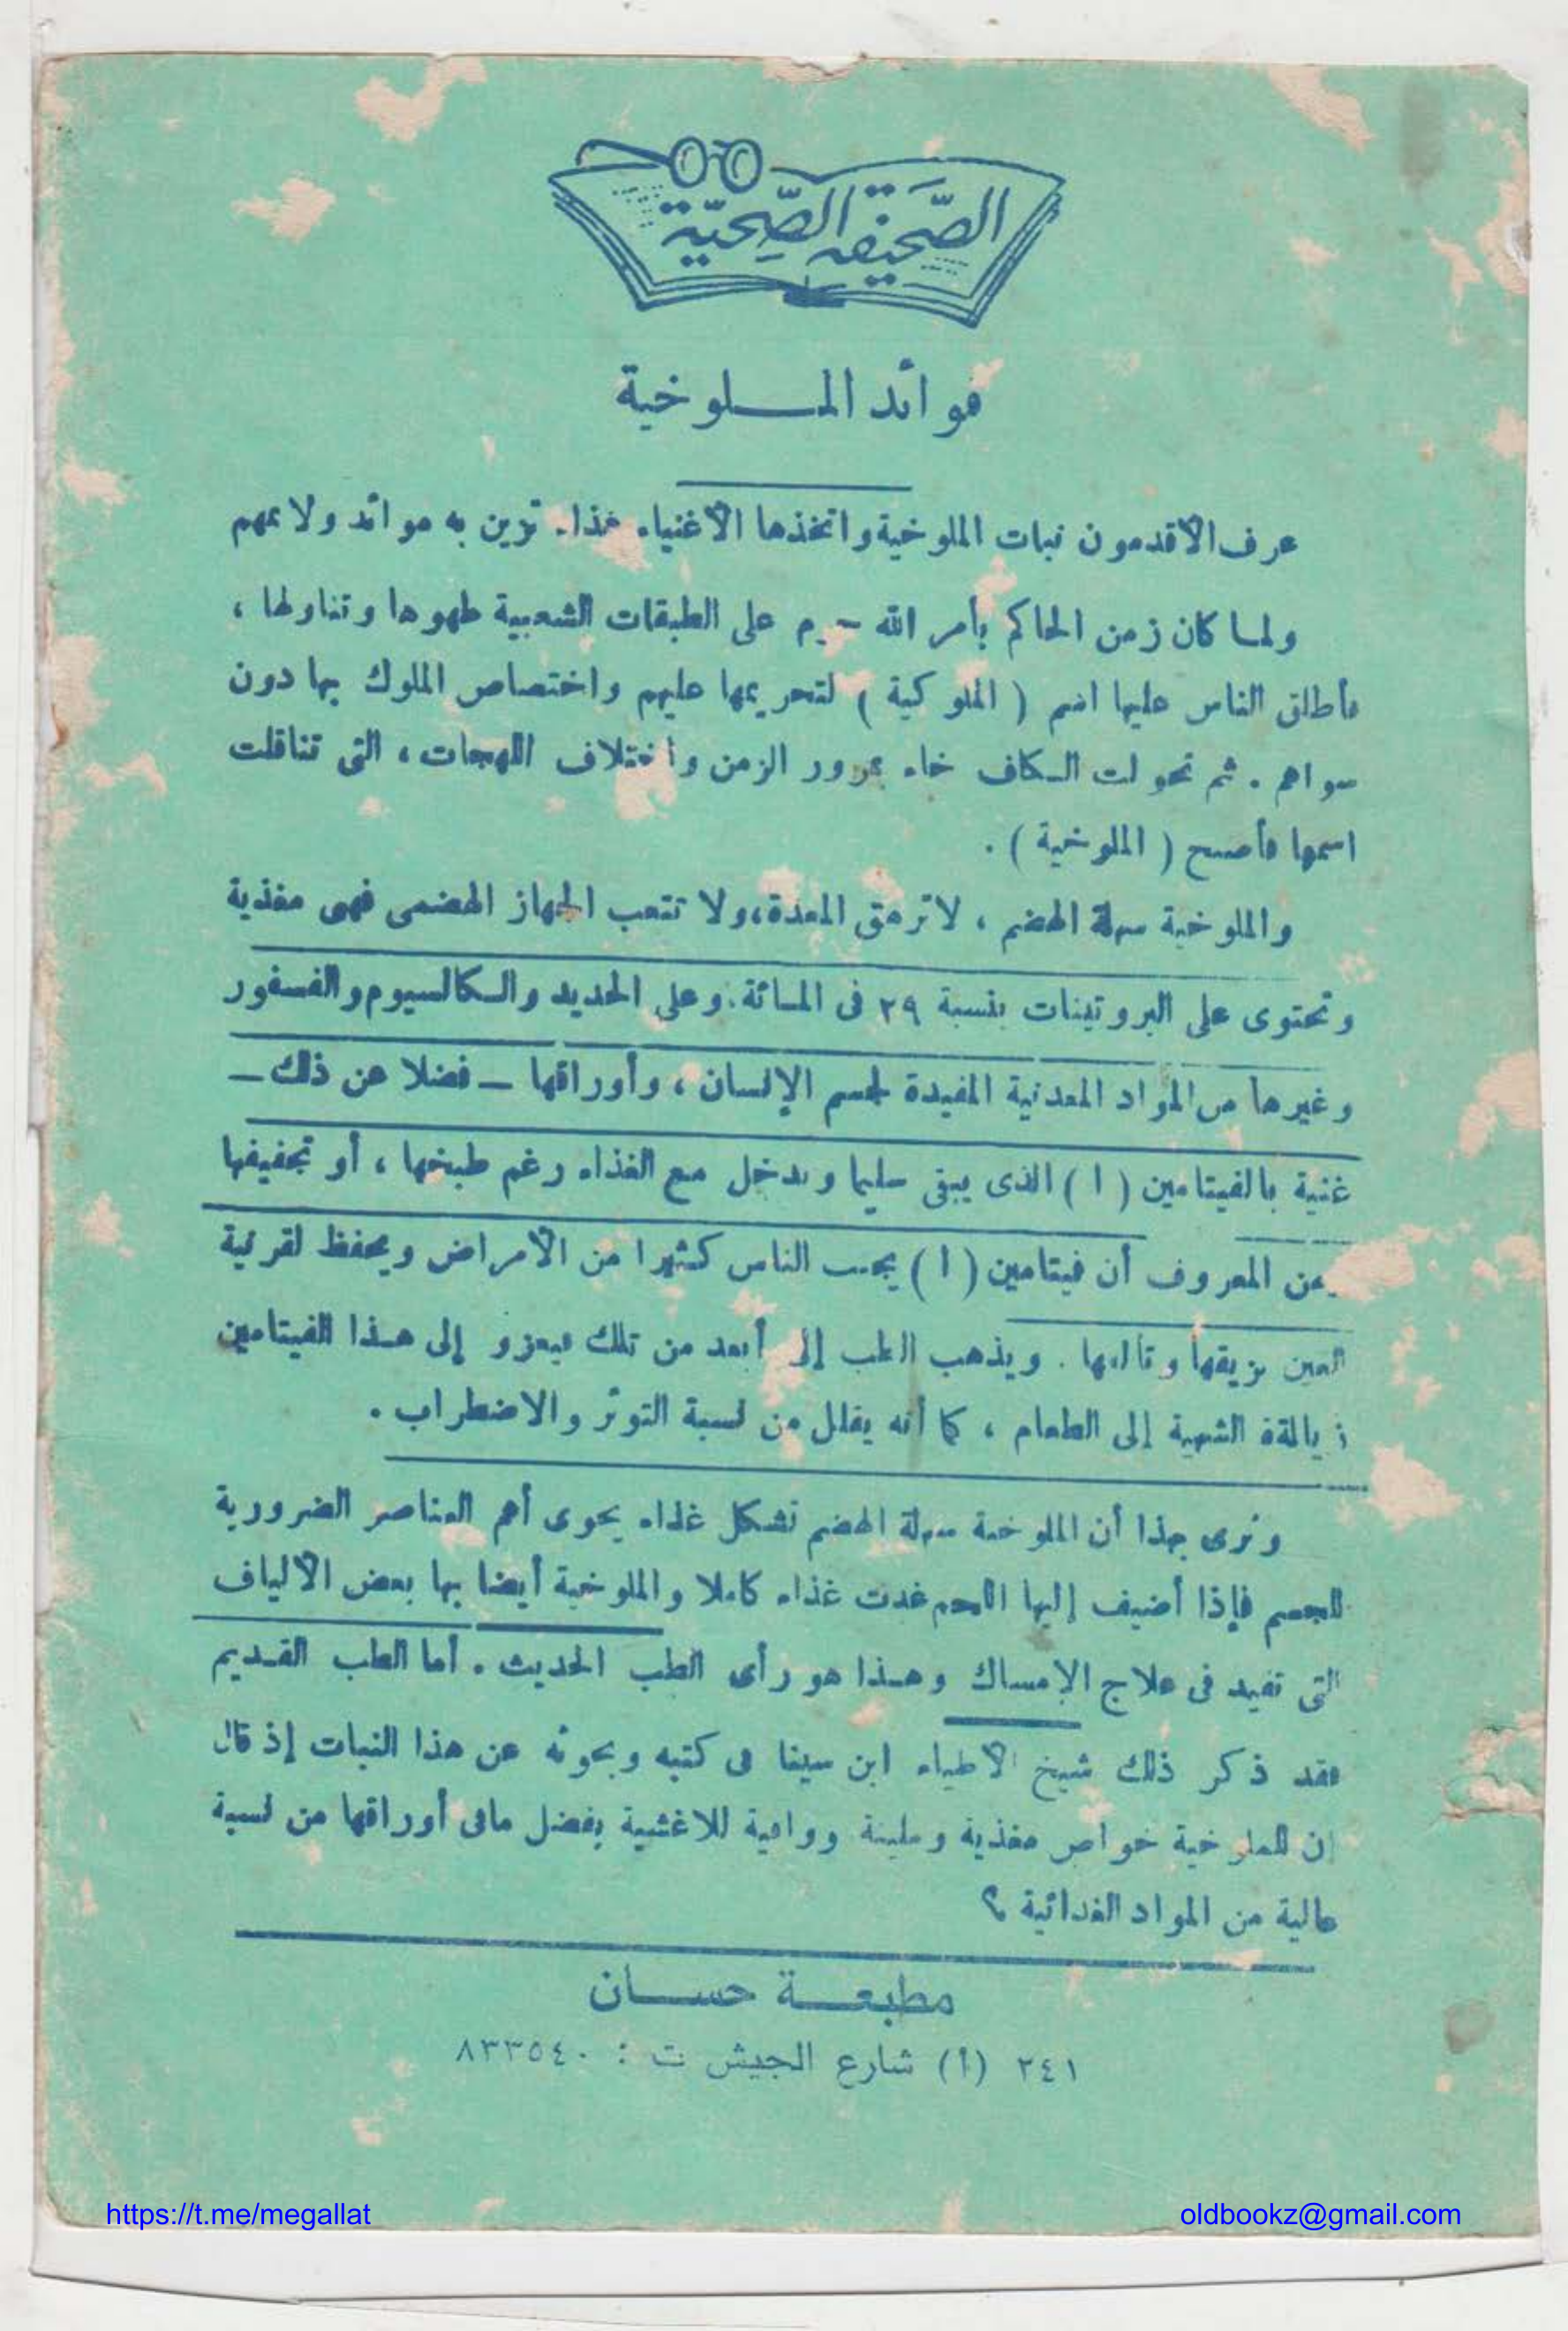 الصَّحيفة الصِّحيّة
فوائد الملوخية
عرف الأقدمون نبات الملوخية واتخذها الأغنياء غذاء تزين به موائد ولائمهم
ولما كان زمن الحاكم بأمر الله على الطبقات الشعبية طهوها وتناولها ،
فأطلق الناس عليها اسم ( الملوكية ) لتحريمها عليهم واختصاص الملوك بها دون
سواهم . ثم تحولت الكاف خاء بمرور الزمن واختلاف اللهجات ، التى تناقلت
اسمها فأصبح ( الملوخية ) .
والملوخية سهلة الهضم ، لا ترهق المعدة ، ولا تتعب الجهاز الهضمى فهى مغذية
وتحتوى على البروتينات بنسبة ٢٩ فى المائة . وعلى الحديد والكالسيوم والفسفور
وغيرها من المواد المعدنية المفيدة لجسم الإنسان ، وأوراقها — فضلا عن ذلك —
غنية بالفيتامين ( ا ) الذى يبقى سليما ويدخل مع الغذاء رغم طبخها ، أو تجفيفها
من المعروف أن فيتامين ( ا ) يجنب الناس كثيرا من الأمراض ويحفظ لقرنية
العين بريقها وتألقها . ويذهب الطب إلى أبعد من تلك فيعزو إلى هذا الفيتامين
الشهية إلى الطعام ، كما أنه يقلل من نسبة التوتر والاضطراب .
ونرى بهذا أن الملوخية سهلة الهضم تشكل غذاء يحوى أهم العناصر الضرورية
للجسم فإذا أضيف إليها اللحم غدت غذاء كاملا والملوخية أيضا بها بعض الألياف
التى تفيد فى علاج الإمساك وهذا هو رأى الطب الحديث . أما الطب القديم
فقد ذكر ذلك شيخ الأطباء ابن سينا فى كتبه وبحوثه عن هذا النبات إذ قال
إن للملوخية خواص مغذية وملينة وواقية للأغشية بفضل مافى أوراقها من نسبة
عالية من المواد الغدائية ؟
مطبعة حسان
٢٤١ (أ) شارع الجيش ت : ٨٣٣٥٤٠
https://t.me/megallat oldbookz@gmail.com